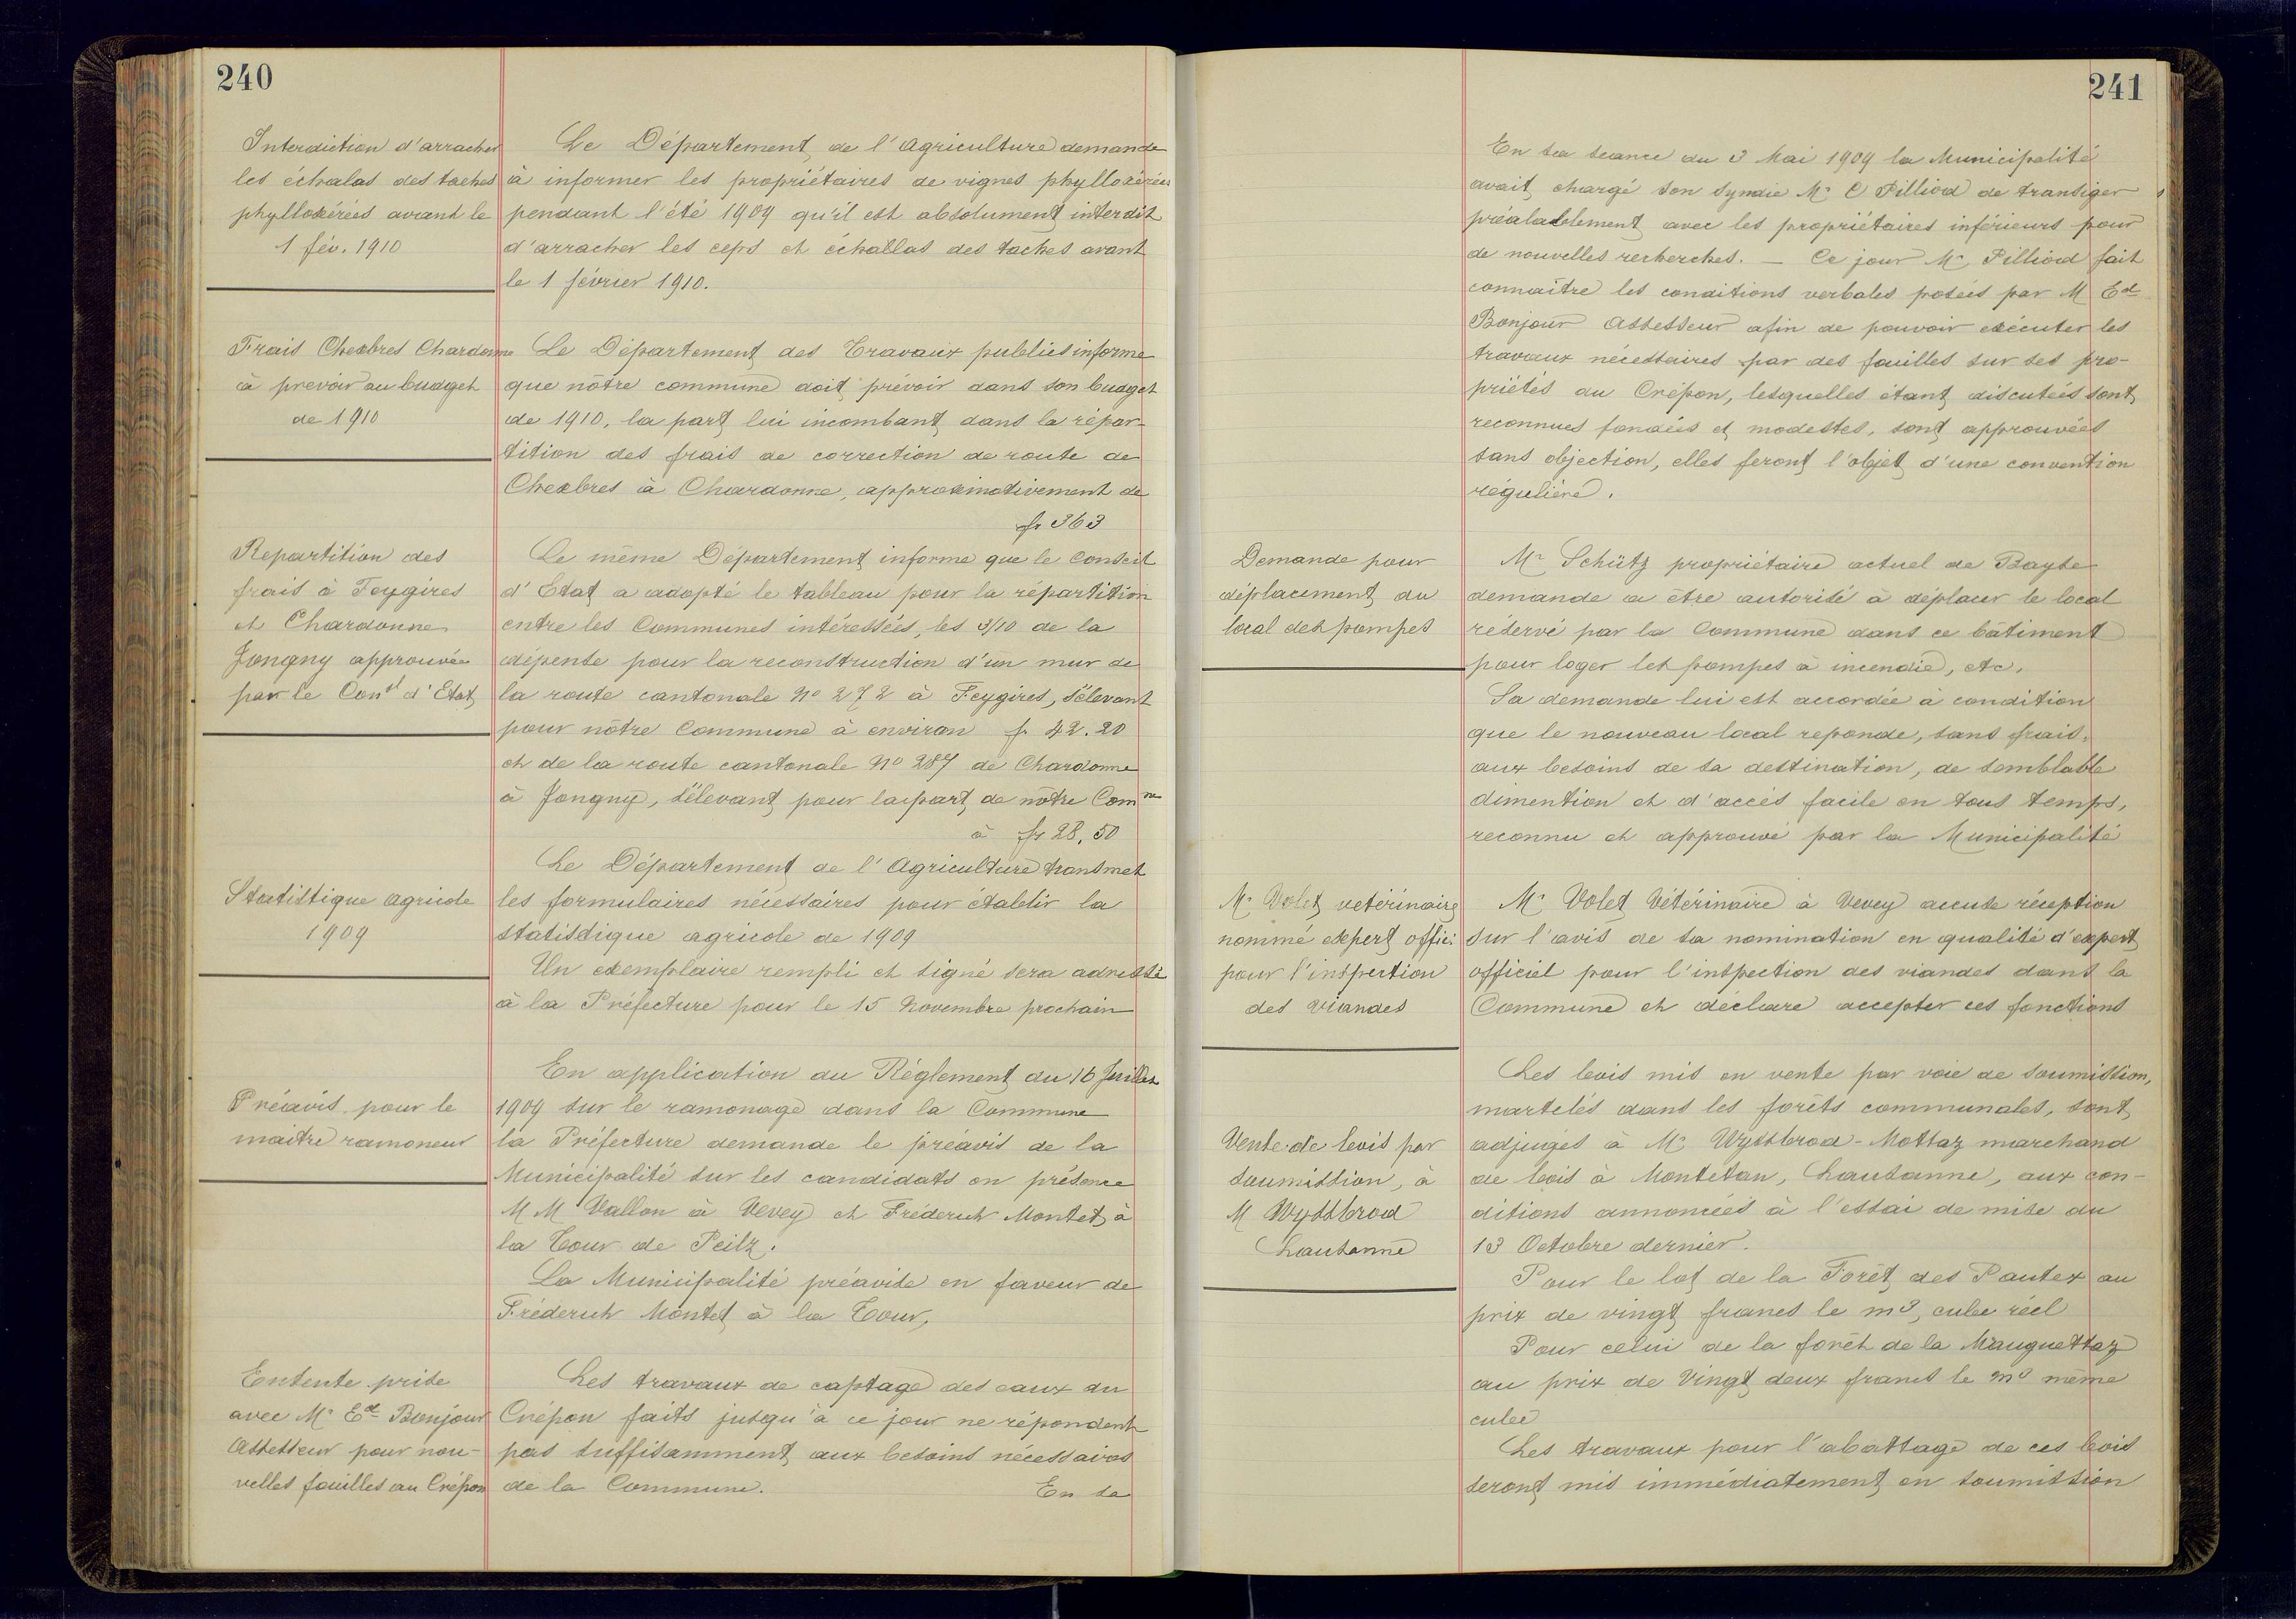 240
Interdiction d'arracher
les échalas des taches
phylloxérées avant le
1 fév. 1910
Le Département de l'Agriculture demande
à informer les propriétaires de vignes phylloxérées
pendant l'été 1909 qu'il est absolument interdit
d'arracher les ceps et échallas des taches avant
le 1 février 1910.
Frais Chexbres Chardonne
à prevoir au budget
de 1910
Le Département des Travaux publics informe
que nôtre commune doit prévoir dans son budget
de 1910, la part lui incombant dans la répar-
tition des frais de correction de route de
Chexbres à Chardonne, approximativement de
fr 363
Repartition des
frais à Feygires
et Chardonne
Jongny approuvée
par le Con.el d'Etat
Le même Département informe que le Conseil
d'Etat a adopté le tableau pour la répartition
entre les Communes intéressées, les 3/10 de la
dépense pour la reconstruction d'un mur de
la route cantonale No 272 à Feygires, s'élevant
pour nôtre Commune à environ fr 42.20
et de la route cantonale No 287 de Chardonne
à Jongny, s'élevant pour la part de nôtre Comne
à fr 28.50
Statistique agricole
1909
Le Département de l'Agriculture transmet
les formulaires nécessaires pour établir la
statistique agricole de 1909
Un exemplaire rempli et signé sera adressé
à la Préfecture pour le 15 Novembre prochain
Préavis pour le
maitre ramoneur
En application du Réglement du 16 Juillet
1909 sur le ramonage dans la Commune
la Préfecture demande le préavis de la
Municipalité sur les candidats en présence
MM Vallon à Vevey et Fréderich Montet à
la Tour de Peilz.
La Municipalité préavise en faveur de
Fréderich Montet à la Tour,
Entente prise
avec Mr Ed Bonjour
Assesseur pour nou-
velles fouilles au Crépon
Les travaux de captage des eaux du
Crépon faits jusqu'à ce jour ne répondent
pas suffisamment aux besoins nécessaires
de la Commune.
En sa
241
En sa seance du 3 Mai 1909 la Municipalité
avait chargé son Syndic Mr C Pilliod de transiger
préalablement avec les propriétaires inférieurs pour
de nouvelles recherches. — Ce jour Mr Pilliod fait
connaître les conditions verbales posées par M Ed
Bonjour Assesseur afin de pouvoir exécuter les
travaux nécessaires par des fouilles sur ses pro-
priétés au Crépon, lesquelles étant discutées sont
reconnues fondées et modestes, sont approuvées
sans objection, elles feront l'objet d'une convention
régulière.
Demande pour
déplacement du
local des pompes
Mr Schütz propriétaire actuel de Bayse
demande a être autorisé à déplacer le local
réservé par la Commune dans ce bâtiment
pour loger les pompes à incendie, etc.
Sa demande lui est accordée à condition
que le nouveau local reponde, sans frais,
aux besoins de sa destination, de semblable
dimention et d'accés facile en tous temps,
reconnu et approuvé par la Municipalité
Mr Volet vetérinaire
nommé expert offici
pour l'inspection
des viandes
Mr Volet Vétérinaire à Vevey accuse réception
sur l'avis de sa nomination en qualité d'expert
officiel pour l'inspection des viandes dans la
Commune et déclare accepter ces fonctions
Vente de bois par
soumission, à
M Wyssbrod
Lausanne
Les bois mis en vente par voie de soumission,
martelés dans les forêts communales, sont
adjugés à Mr Wyssbrod-Mottaz marchand
de bois à Montétan, Lausanne, aux con-
ditions annoncées à l'essai de mise du
13 Octobre dernier.
Pour le lot de la Forêt des Pautex au
prix de vingt francs le m3, cube réel
Pour celui de la forêt de la Mauguettaz
au prix de Vingt deux francs le m3 même
cube
Les travaux pour l'abattage de ces bois
seront mis immédiatement en soumission